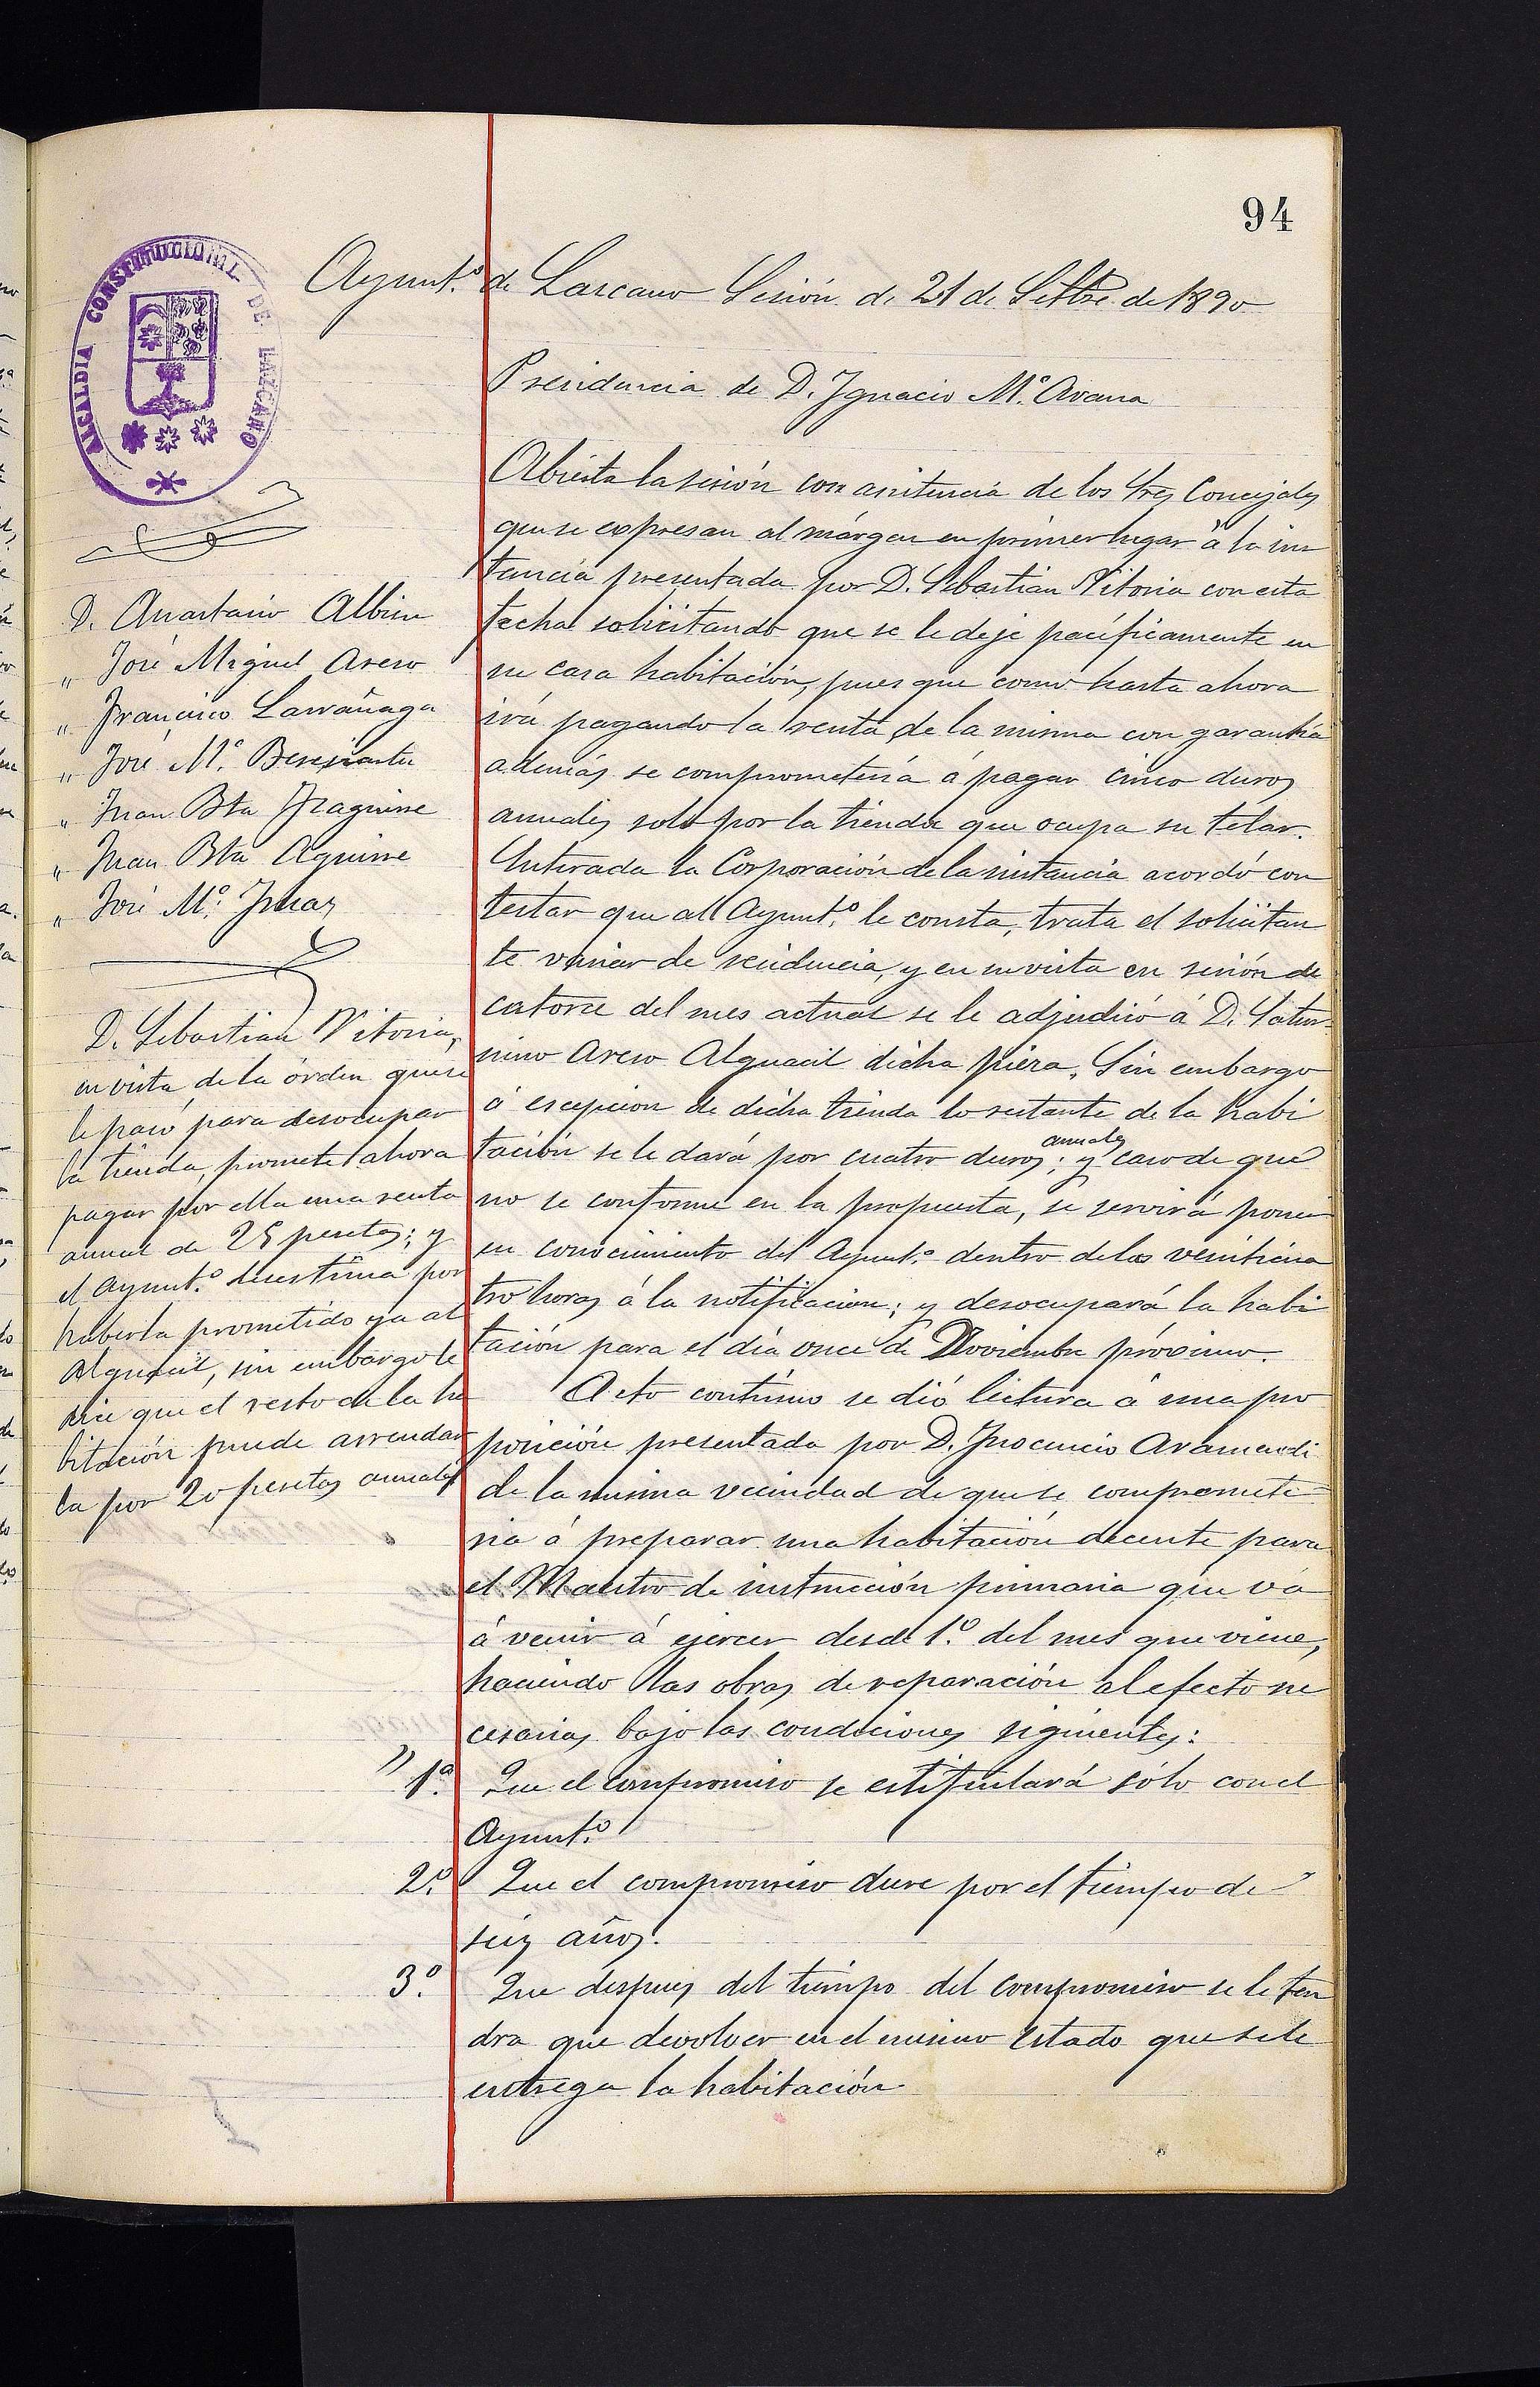 94
ALCALDIA CONSTITUCIONAL DE LAZCANO
Ayunt.º de Lazcano Sesión de 21 de Setbre. de 1890
Presidencia de D. Ignacio M.ª Arana
D. Anastasio Albisu
„ José Miguel Aseso
„ Francisco Larrañaga
„ José M.ª
„ Juan Bta
„ Juan Bta Aguirre
„ José M.ª Imaz
D. Sebastian Vitoria,
en vista de la órden que se
le pasó para desocupar
la tienda, promete ahora
pagar por ella una renta
anual de 25 pesetas; y
el Ayunt.º desestima por
haberla prometido ya al
Alguacil, sin embargo le
dice que el resto de la ha
bitación puede arrendar
la por 20 pesetas anuales
Abierta la sesión con asistencia de los Sres Concejales
que se expresan al márgen en primer lugar á la ins
tancia presentada por D. Sebastian Vitoria con esta
fecha solicitando que se le deje pacíficamente en
su casa habitación, pues que como hasta ahora
irá pagando la renta de la misma con garantía
además se comprometería á pagar cinco duros
anuales solo por la tienda que ocupa su telar.
Enterada la Corporación de la instancia acordó con
testar que al Ayunt.º le consta, trata el solicitan
te variar de residencia, y en su vista en sesión de
catorce del mes actual se le adjudicó á D. Satur-
nino Areso Alguacil dicha pieza. Sin embargo
á escepcion de dicha tienda lo restante de la habi
tación se le dará por cuatro duros anuales; y caso de que
no se conforme en la propuesta, se servirá poner
en conocimiento del Ayunt.º dentro de las veinticua
tro horas á la notificacion; y desocupará la habi
tación para el día once de Noviembre próximo.
Acto contínuo se dió lectura á una pro
posición presentada por D. Inocencio Aramendi
de la misma vecindad de que se compromete
ria á preparar una habitación decente para
el Maestro de instrucción primaria que vá
á venir á ejercer desde 1.º del mes que viene,
haciendo las obras de reparación al efecto ne
cesarias bajo las condiciones siguientes:
" 1.ª Que el compromiso se estipulará sólo con el
Ayunt.º
2.º Que el compromiso dure por el tiempo de
seis años.
3.º Que despues del tiempo del compromiso se le ten
dra que devolver en el mismo estado que se le
entrega la habitación